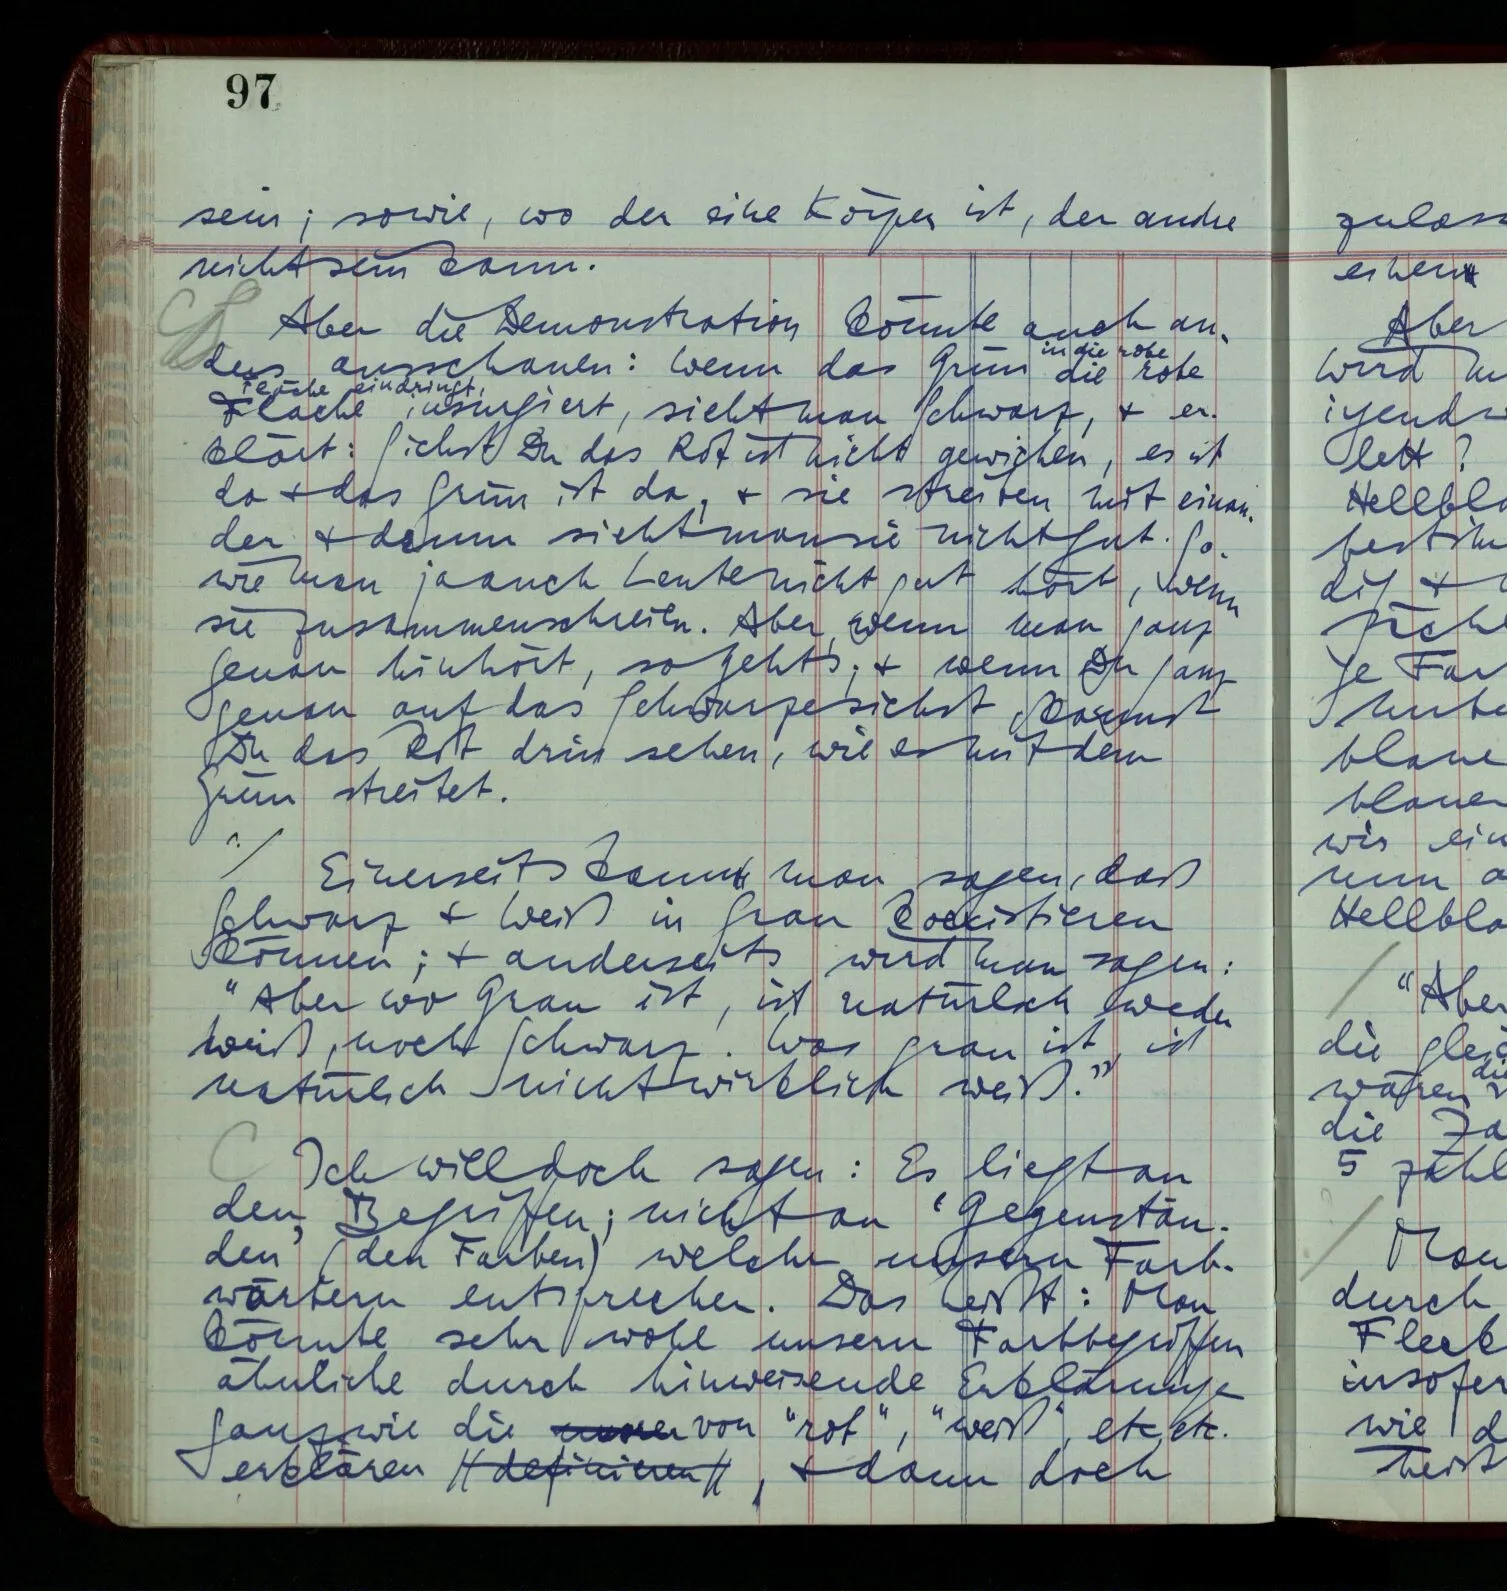 97
sein; sowie, wo der eine Körper ist, der andre
nicht sein kann.
Aber die Demonstration könnte auch an-
ders ausschauen: Wenn das Grün die rote
in die rote
Fläche eindringt,
Fläche insurgiert, sieht man Schwarz, & er-
klärt: Siehst Du das Rot ist nicht gewichen, es ist
da & das Grün ist da, & sie streiten mit einan-
der & darum sieht man sie nicht gut. So-
wie man ja auch Leute nicht gut hört, wenn
sie zusammenschreien. Aber, wenn man ganz
genau hinhört, so geht's; & wenn Du ganz
genau auf das Schwarze siehst, kannst
Du das Rot drin sehen, wie es mit dem
Grün streitet.
Einerseits kann man sagen, daß
Schwarz & Weiß in Grau koexistieren
können; & anderseits wird man sagen:
"Aber wo Grau ist, ist natürlich weder
weiß, noch Schwarz. Was grau ist, ist
natürlich nicht wirklich weiß."
Ich will doch sagen: Es liegt an
den Begriffen; nicht an 'Gegenstän-
den' (den Farben) welche unsern Farb-
wörtern entsprechen. Das heißt: Man
könnte sehr wohl unsern Farbbegriffen
ähnliche durch hinweisende Erklärungen
ganz wie die von "rot", "weiß", etc. etc.
erklären // definieren //, & dann doch
zulass
einem
Aber
wird
irgend
lett?
Hellbla
bestim
dig &
je Far
blaue
blauen
wir ein
nun
Hellbla
"Aber
die glei
wären
die
die Za
5 zähl
Man
durch
Fleck
insofer
wie d
heiß